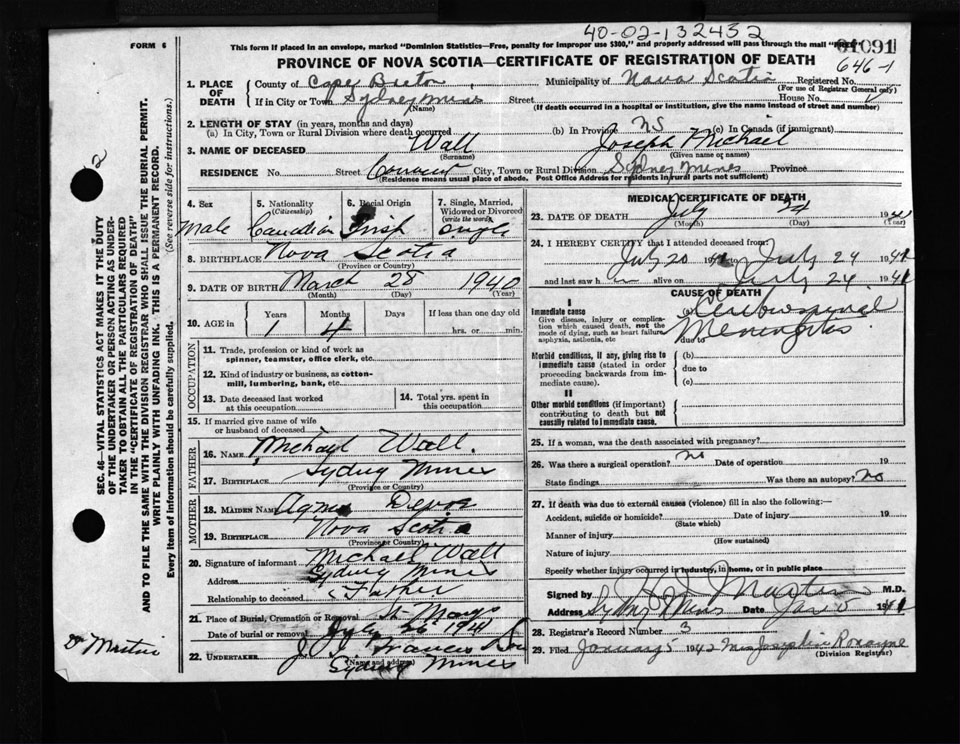 40-02-132432
FORM 6
This form if placed in an envelope, marked "Dominion Statistics—Free, penalty for improper use $300," and properly addressed will pass through the mail
01091
PROVINCE OF NOVA SCOTIA—CERTIFICATE OF REGISTRATION OF DEATH
646-1
1. PLACE OF DEATH
County of Cape Breton Municipality of Nova Scotia Registered No.
(For use of Registrar General only)
If in City or Town Sydney Mines Street House No.
(Name) (If death occurred in a hospital or institution, give the name instead of street and number)
2. LENGTH OF STAY (in years, months and days)
(a) In City, Town or Rural Division where death occurred (b) In Province NS (c) In Canada (if immigrant)
3. NAME OF DECEASED Wall Joseph Michael
(Surname) (Given name or names)
RESIDENCE No. Street City, Town or Rural Division Sydney Mines Province
(Residence means usual place of abode. Post Office Address for residents in rural parts not sufficient)
4. Sex
Male
5. Nationality
(Citizenship)
Canadian
6. Racial Origin
Irish
7. Single, Married, Widowed or Divorced
(write the words)
Single
8. BIRTHPLACE Nova Scotia
(Province or Country)
9. DATE OF BIRTH March 28 1940
(Month) (Day) (Year)
10. AGE in Years Months Days If less than one day old
1 4 hrs. or min.
OCCUPATION
11. Trade, profession or kind of work as spinner, teamster, office clerk, etc.
12. Kind of industry or business, as cotton-mill, lumbering, bank, etc.
13. Date deceased last worked at this occupation
14. Total yrs. spent in this occupation
15. If married give name of wife or husband of deceased
FATHER
16. NAME Michael Wall
17. BIRTHPLACE Sydney Mines
(Province or Country)
MOTHER
18. MAIDEN NAME Agnes
19. BIRTHPLACE Nova Scotia
(Province or Country)
20. Signature of informant Michael Wall
Address Sydney Mines
Relationship to deceased Father
21. Place of Burial, Cremation or Removal St Marys
Date of burial or removal July 1941
22. UNDERTAKER Francis
(Name and address)
Sydney Mines
MEDICAL CERTIFICATE OF DEATH
23. DATE OF DEATH July 24 1941
(Month) (Day) (Year)
24. I HEREBY CERTIFY that I attended deceased from:
July 20 1941 to July 24 1941
and last saw h alive on July 24 1941
CAUSE OF DEATH
I
Immediate cause
Give disease, injury or complication which caused death, not the mode of dying, such as heart failure, asphyxia, asthenia, etc
(a) Cerebrospinal
due to Meningitis.
Morbid conditions, if any, giving rise to immediate cause (stated in order proceeding backwards from immediate cause).
(b)
due to
(c)
II
Other morbid conditions (if important) contributing to death but not causally related to immediate cause.
25. If a woman, was the death associated with pregnancy?
26. Was there a surgical operation? no Date of operation 19
State findings Was there an autopsy? no
27. If death was due to external causes (violence) fill in also the following:—
Accident, suicide or homicide? Date of injury 19
(State which)
Manner of injury
(How sustained)
Nature of injury
Specify whether injury occurred in industry, in home, or in public place
Signed by Martin M.D.
Address Syd Mines Date Jan
28. Registrar's Record Number 3
29. Filed January 5 1942 Mrs Josephine
(Division Registrar)
SEC. 46—VITAL STATISTICS ACT MAKES IT THE DUTY
OF THE UNDERTAKER OR PERSON ACTING AS UNDER-
TAKER TO OBTAIN ALL THE PARTICULARS REQUIRED
IN THE "CERTIFICATE OF REGISTRATION OF DEATH"
AND TO FILE THE SAME WITH THE DIVISION REGISTRAR WHO SHALL ISSUE THE BURIAL PERMIT.
WRITE PLAINLY WITH UNFADING INK. THIS IS A PERMANENT RECORD.
Every item of Information should be carefully supplied. (See reverse side for instructions.)
2
Dr Martin